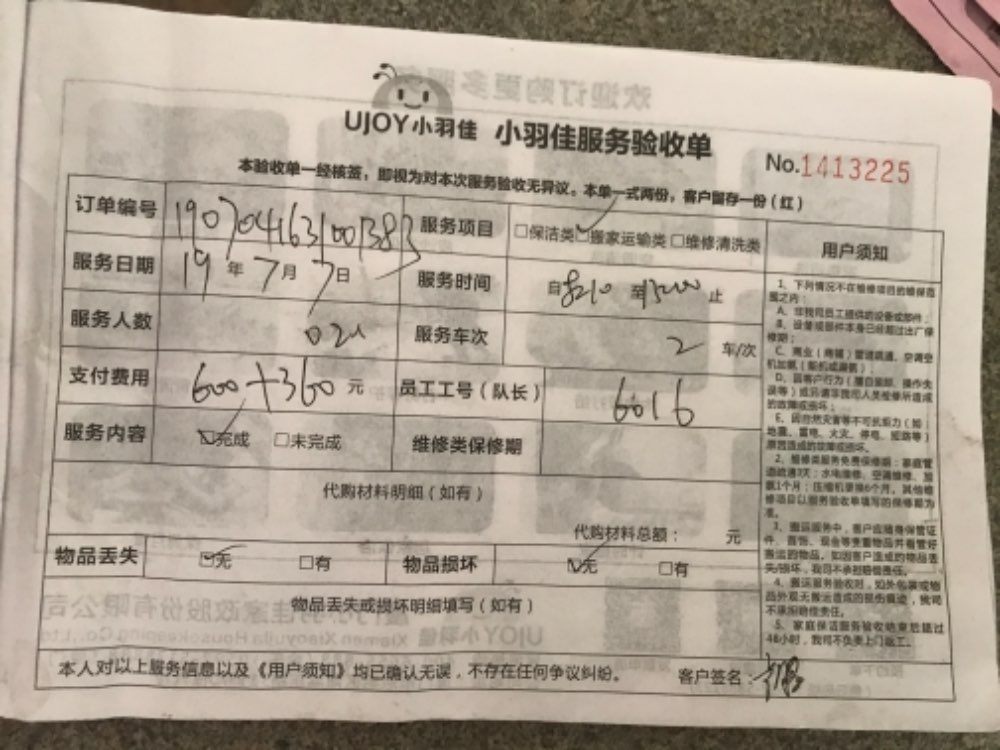 UJOY小羽佳 小羽佳服务验收单
No.1413225
本验收单一经核签，即视为对本次服务验收无异议。本单一式两份，客户留存一份（红）
订单编号 1907041631001383 服务项目 □保洁类 ☑搬家运输类 □维修清洗类
服务日期 19年7月7日 服务时间 自 至 止
服务人数 服务车次 2 车/次
支付费用 600+360 元 员工工号（队长） 6016
服务内容 ☑完成 □未完成 维修类保修期
代购材料明细（如有）
代购材料总额： 元
物品丢失 ☑无 □有 物品损坏 ☑无 □有
物品丢失或损坏明细填写（如有）
本人对以上服务信息以及《用户须知》均已确认无误，不存在任何争议纠纷。 客户签名：
用户须知
1、下列情况不在维修项目的维保范
围之内：
A、非我司员工提供的设备或部件；
B、设备或部件本身已经超过出厂保
修期；
C、商业（商铺）管道疏通、空调空
机加氨（柜机或满氨）；
D、因客户行为（擅自装卸、操作失
误等）或另请非我司人员维修所造成
的故障或损坏；
E、因自然灾害等不可抗拒力（如：
地震、雷电、火灾、停电、短路等）
原因造成的故障或损坏。
2、维修类服务免费保修期：家庭管
道疏通3天；水电维修、空调维修、加
氨1个月；压缩机更换6个月，其他维
修项目以服务验收单填写的保修期为
准。
3、搬运服务中，客户应随身保管证
件、首饰、现金等贵重物品并看管好
搬运的物品，如因客户造成的物品丢
失/损坏，我司不承担赔偿责任。
4、搬运服务验收时，如外包装或物
品外观无搬运造成的损伤痕迹，我司
不承担赔偿责任。
5、家庭保洁服务验收结束后超过
48小时，我司不负责上门返工。